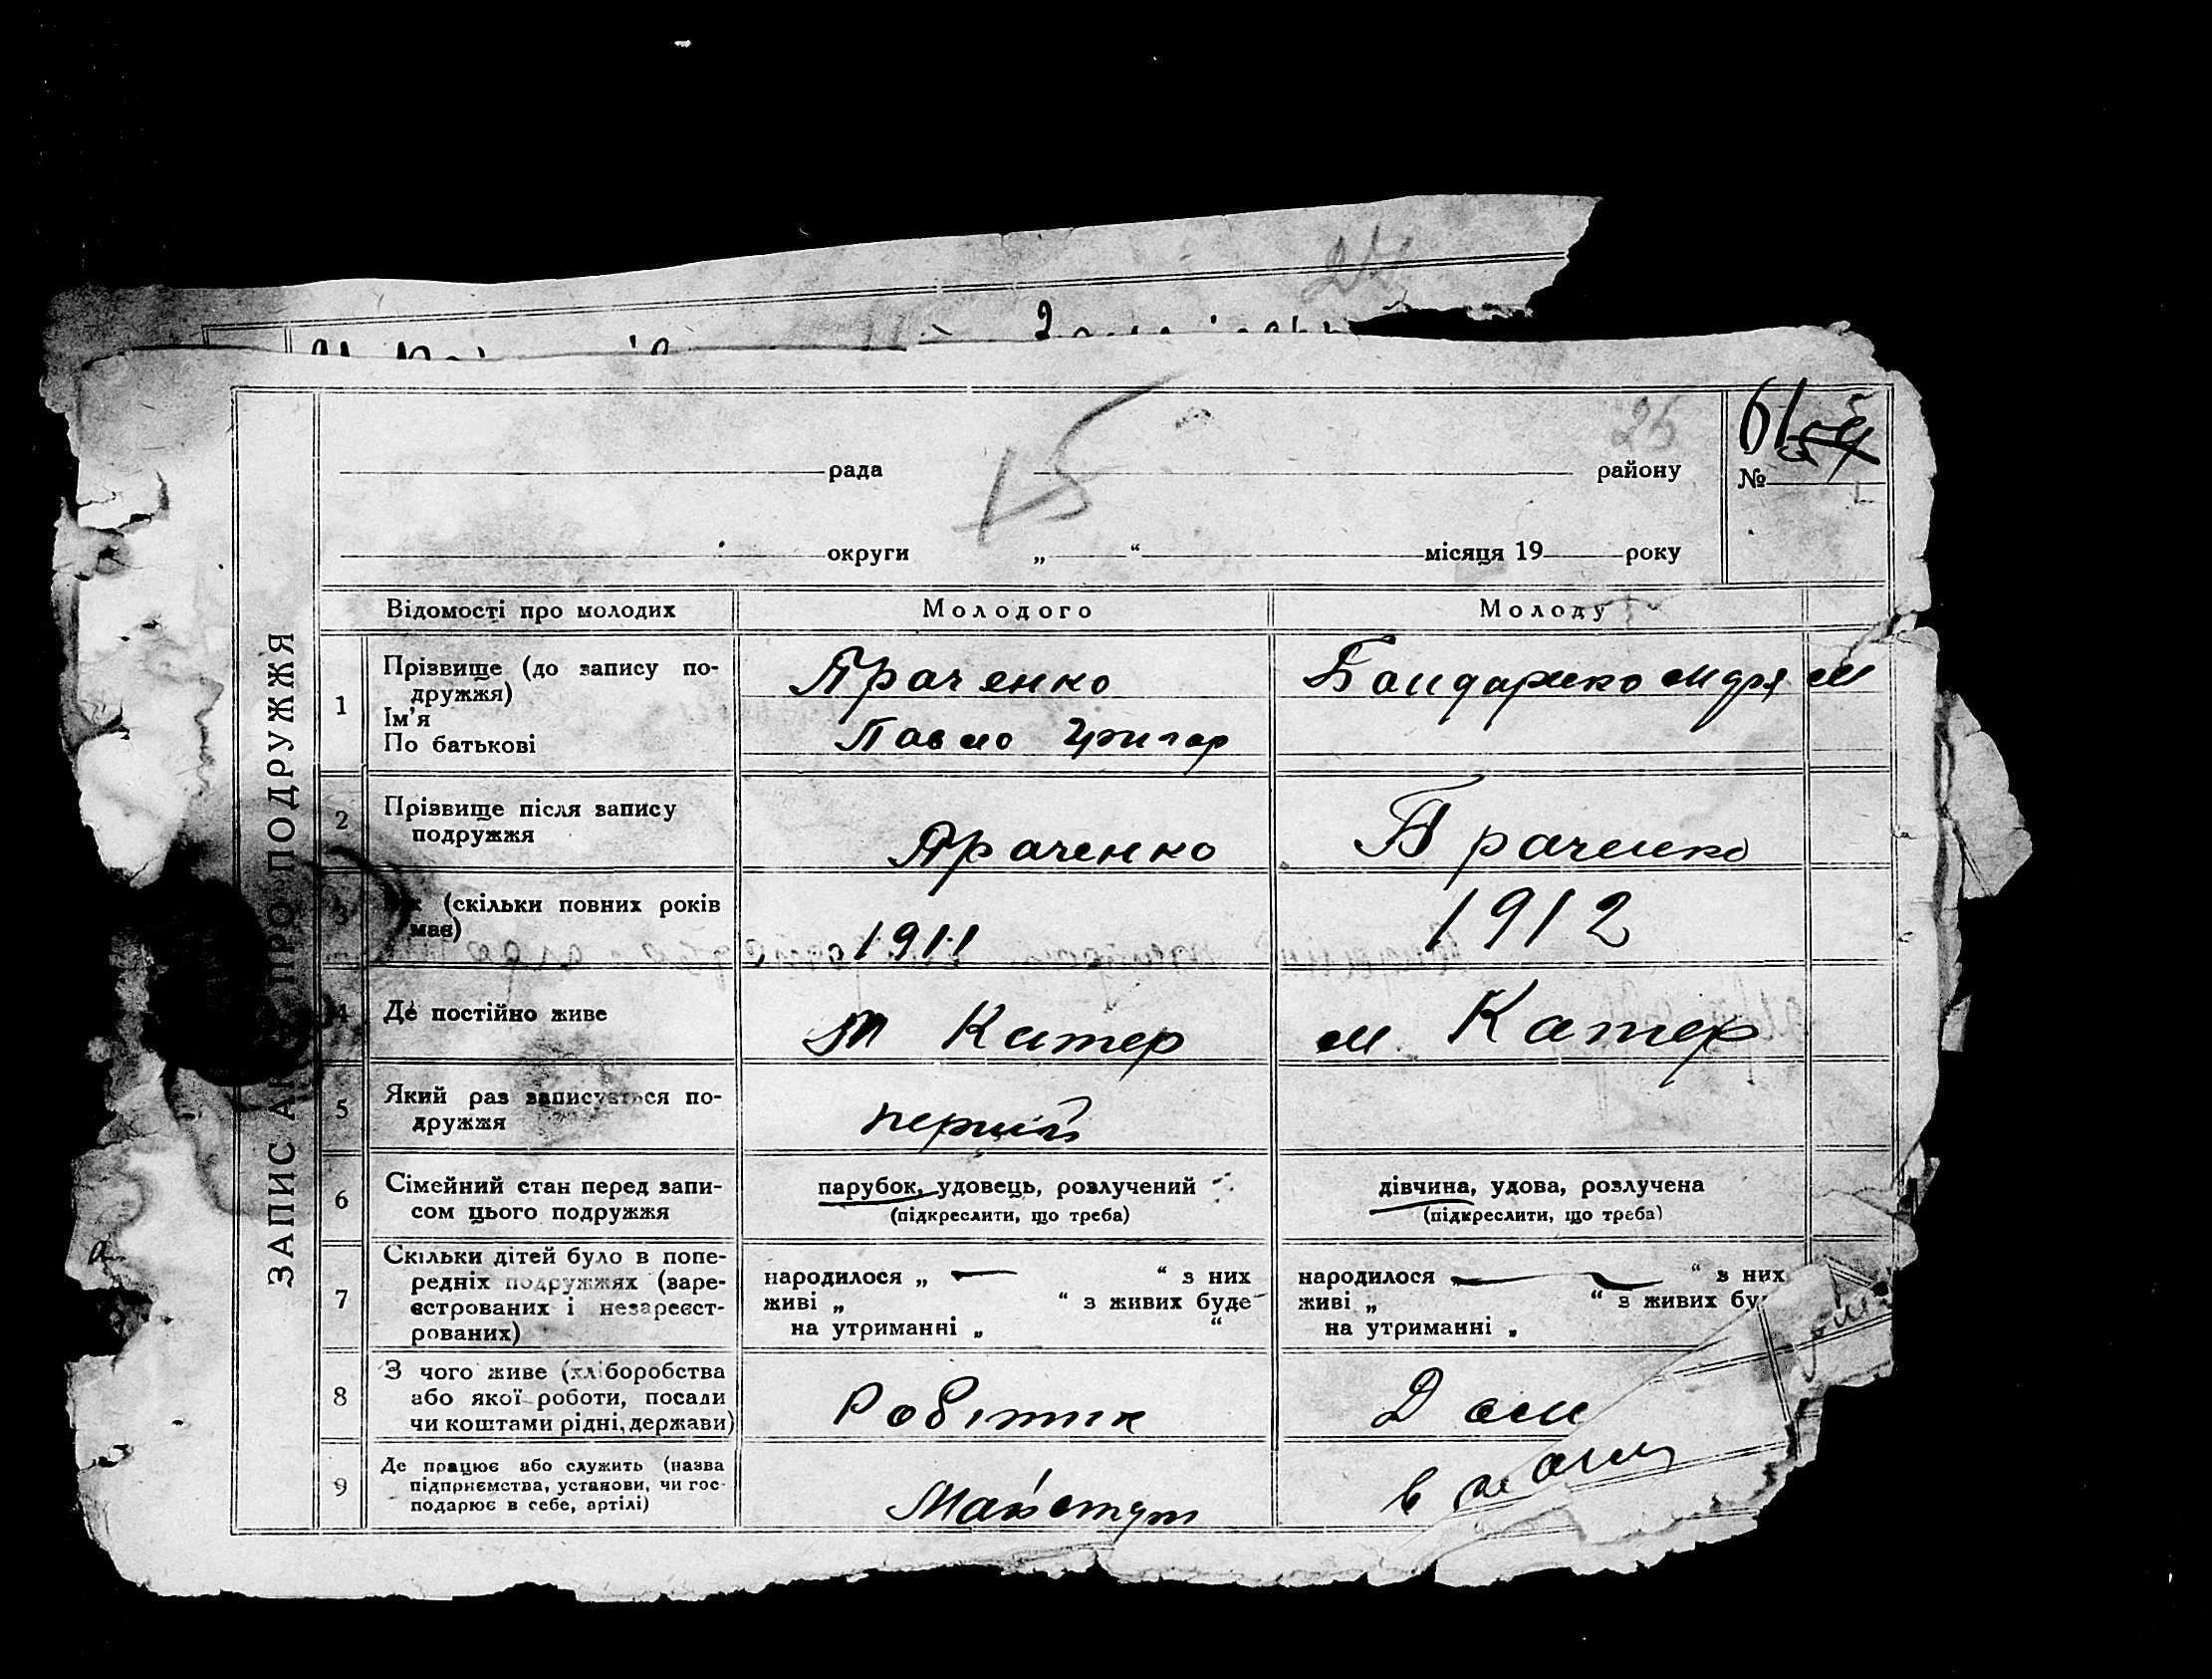 15
25
61
рада
району
№
округи „ “ місяця 19 року
ЗАПИС ПРО ПОДРУЖЖЯ
Відомості про молодих Молодого Молоду
1 Прізвище (до запису по-
дружжя)
Ім’я
По батькові
Яраченко
Павло Григор
Бондаренко
2 Прізвище після запису
подружжя
Яраченко
3 (скільки повних років
має)
1911
1912
4 Де постійно живе
м Катер
м. Катер
5 Який раз записується по-
дружжя
перший
6 Сімейний стан перед запи-
сом цього подружжя
парубок, удовець, розлучений
(підкреслити, що треба)
дівчина, удова, розлучена
(підкреслити, що треба)
7 Скільки дітей було в попе-
редніх подружжях (заре-
єстрованих і незареєст-
рованих)
народилося „ — “ з них
живі „ “ з живих буде
на утриманні „ “
народилося — “ з них
живі „ “ з живих бу
на утриманні „
8 З чого живе (хліборобства
або якої роботи, посади
чи коштами рідні, держави)
Робітник
Дом
9 Де працює або служить (назва
підприємства, установи, чи гос-
подарює в себе, артілі)